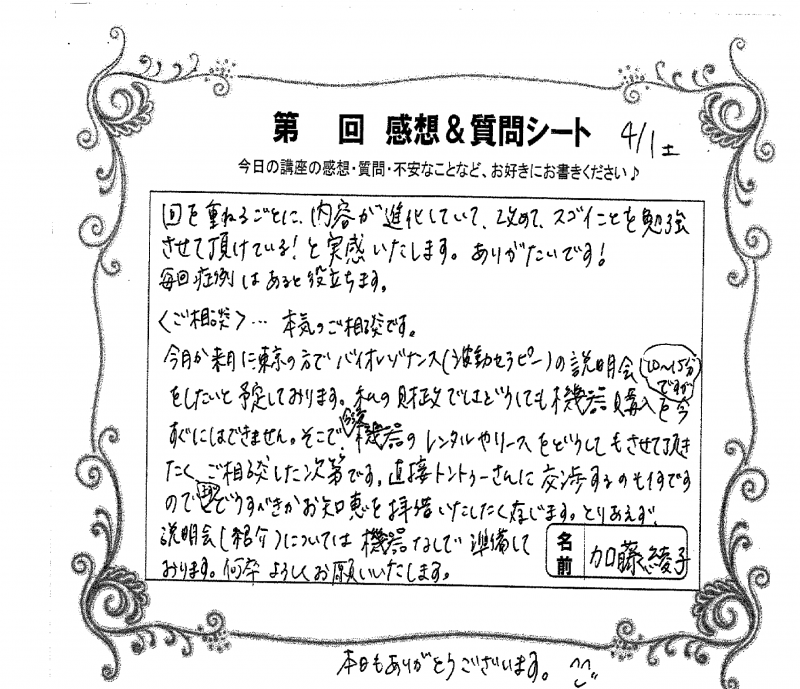 第　回 感想&質問シート 4/1 土
今日の講座の感想・質問・不安なことなど、お好きにお書きください♪
回を重ねるごとに、内容が進化していて、改めて、スゴイことを勉強
させて頂けている！と実感いたします。ありがたいです！
毎回症例はあると役立ちます。
〈ご相談〉… 本気のご相談です。
今月か来月に東京の方でバイオレゾナンス(波動セラピー)の説明会
10〜15分
ですが
をしたいと予定しております。私の財政ではどうしても機器購入を今
すぐにはできません。そこで、機器のレンタルやリースをどうしてもさせて頂き
たく、ご相談した次第です。直接トントゥーさんに交渉するのも何です
のでどうすべきかお知恵を拝借いたしたく存じます。とりあえず、
説明会(紹介)については機器なしで準備して
おります。何卒よろしくお願いいたします。
名前 加藤綾子
本日もありがとうございます。